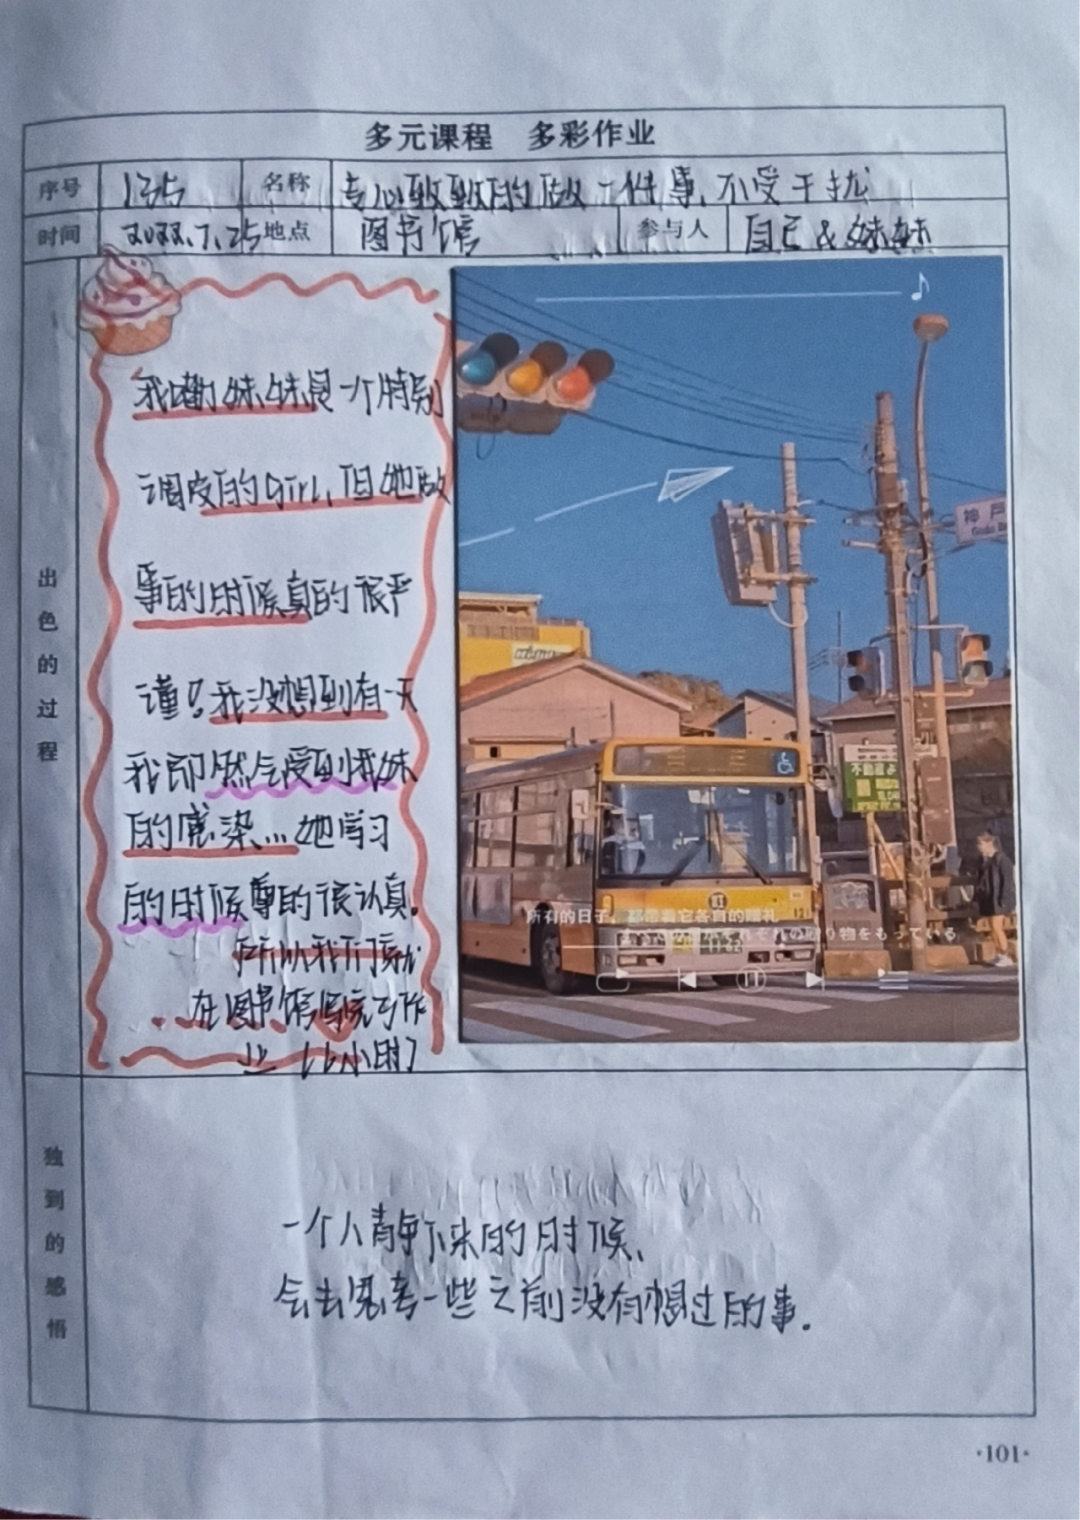 多元课程 多彩作业
序号 135 名称 专心致致的做一件事,不受干扰
时间 2022.7.25 地点 图书馆 参与人 自己&妹妹
出色的过程
我嘞妹妹是一个特别
调皮的Girl,但她做
事的时候真的很严
谨!我没想到有一天
我即然会受到我妹
的感染...她学习
的时候真的很认真。
所以我们就
在图书馆写完了作
业
神戸
不動産よ
所有的日子,都带着它各自的赠礼
すべての日がそれぞれの贈り物をもっている
11-22
独到的感悟
一个人静下来的时候、
会去思考一些之前没有想过的事.
·101·